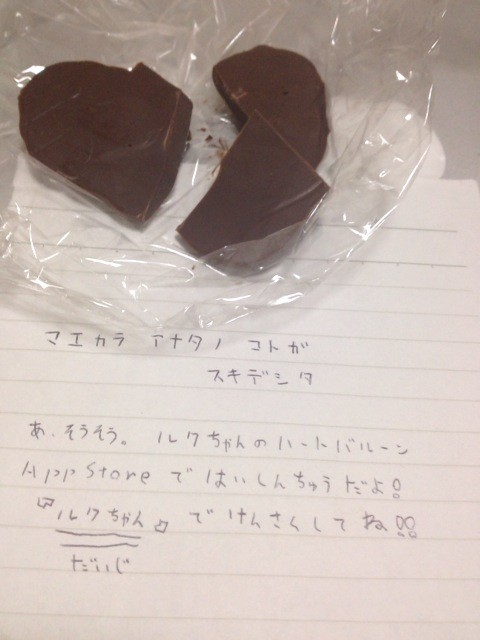 マエカラ アナタノ コトガ
スキデシタ
あ、そうそう。ルクちゃんのハートバルーン
App Storeではいしんちゅうだよ!
『ルクちゃん』でけんさくしてね!!
だいじ